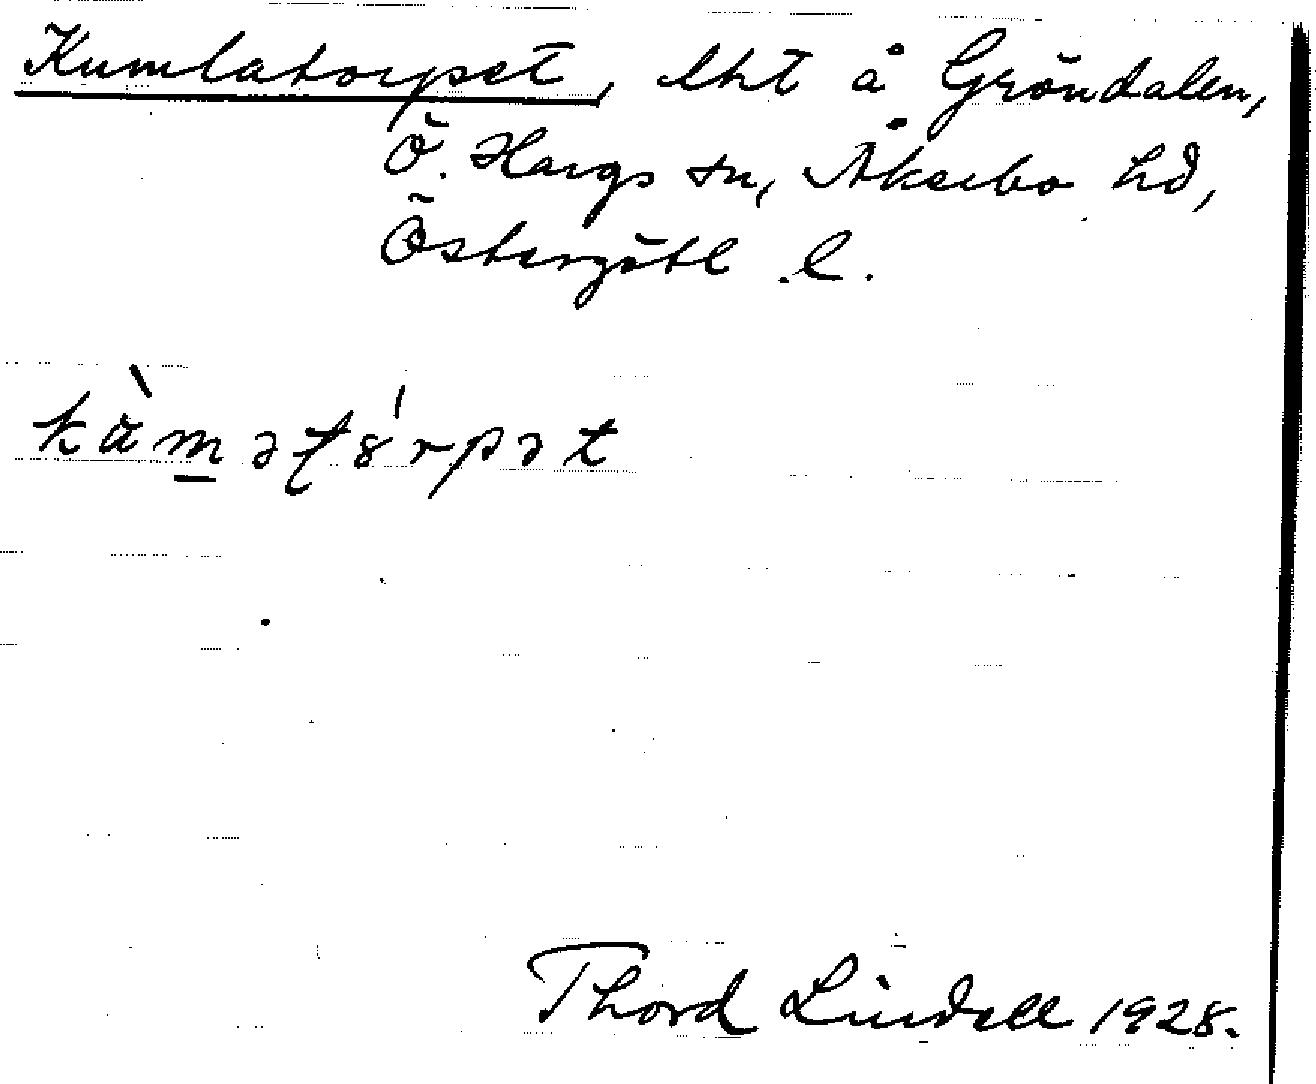 Kumlatorpet, lht å Gröndalen,
Ö. Hargs sn, Åkerbo hd,
Östergötl. l.
kàmət8́rpət
Thord Lindell 1928.